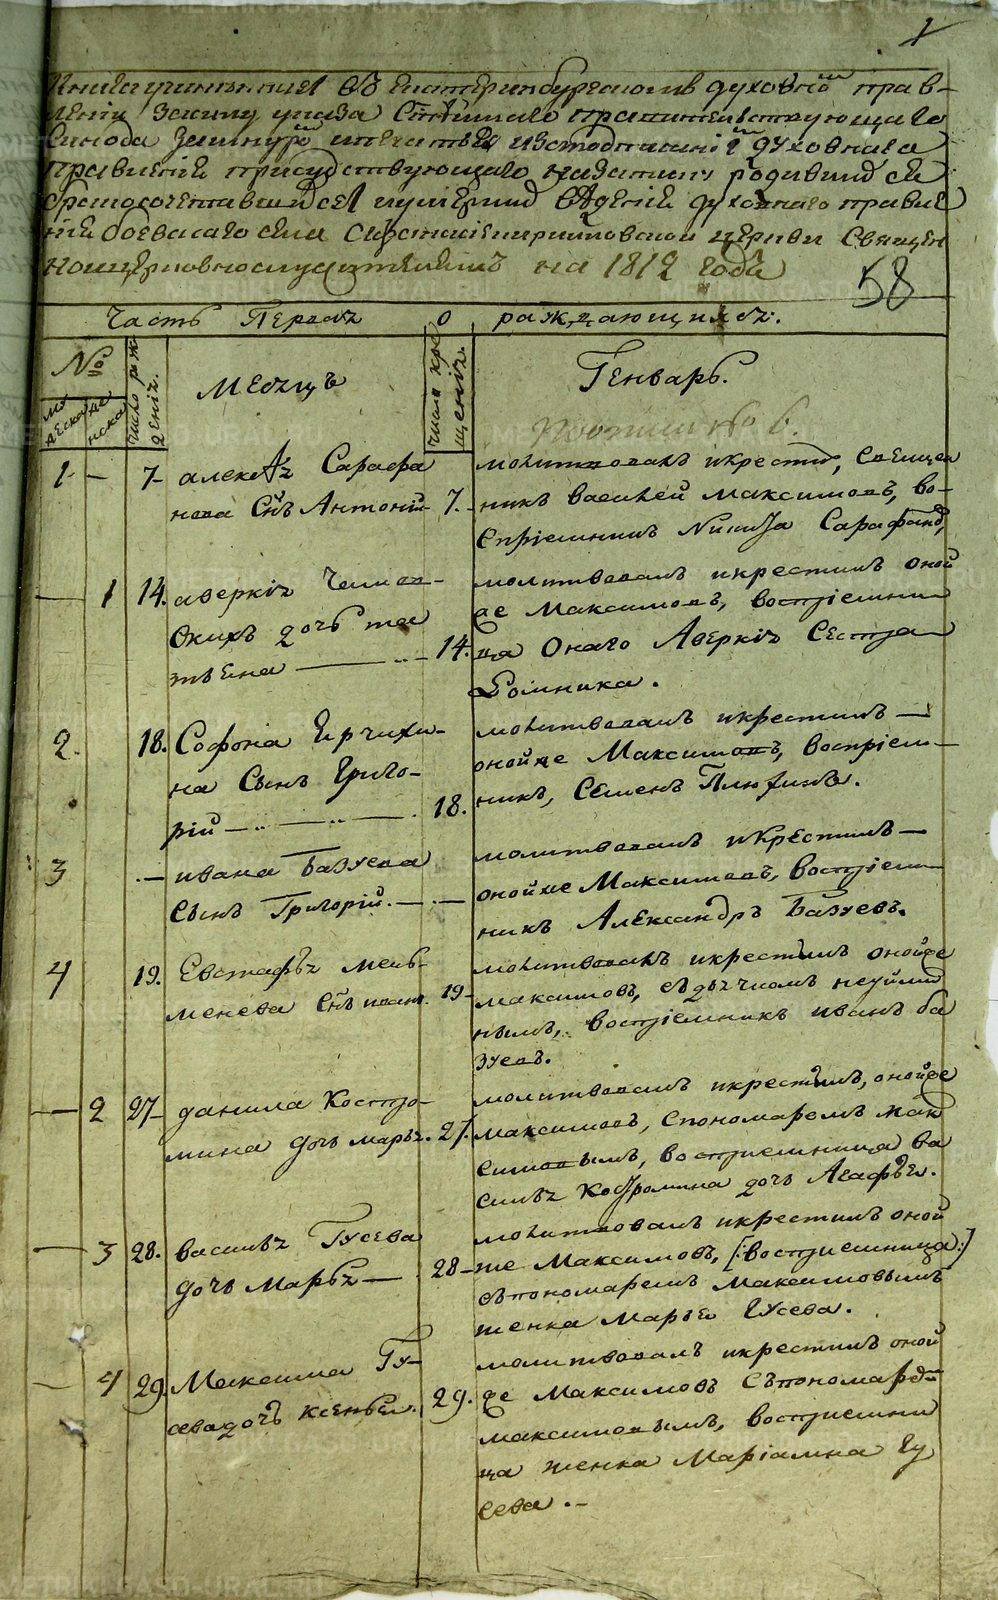 1
Книга чиненная въ Екатеринбургскомъ духовномъ прав-
лении въ силу указа Святѣйшаго Правительствующаго
Синода за шнуромъ печатью и за подписаниемъ духовнаго
правления присудствующаго на записку родившихся
бракосочетавшихся и умершихъ вѣдения духовнаго правле
ния боевскаго села церкви Священ
ноцерковнослужителямъ на 1812 годъ
58
Часть Первая о раждающихся.
№
мужеска
женска
число рож
дения.
Месяцъ
число кре
щения.
Генварь.
1 — 7 алексѣя Сарафа
нова Сынъ Антоній 7.
молитвовалъ и крестилъ, Священ
никъ Василей Максимовъ, во-
спріемникъ Никита Сарафанов,
— 1 14. аверкія
скихъ дочь та
тьяна — 14.
молитвовалъ и крестилъ оной
же Максимовъ, воспріемни
ца Онаго Аверкія Сестра
Соломника.
2. 18. Софона Ирчихи-
на Сынъ Григо-
рій — 18.
молитвовалъ и крестилъ —
оной же Максимовъ, воспріем-
никъ, Семенъ Плюхинъ.
3 — ивана Базуева
Сынъ Григорій. —
молитвовалъ и крестилъ —
оной же Максимовъ, воспріем
никъ Александръ Базуевъ.
4 19. Евстафья мель-
менева Снъ иванъ. 19
молитвовалъ и крестилъ оной же
максимовъ, съ дьячкомъ
нымъ, воспріемникъ иванъ ба
зуевъ.
— 2 27 данила Костро-
мина дочь марья. 27.
молитвовалъ и крестилъ, оной же
максимовъ, с пономаремъ мак
симовымъ, воспріемница ва
силья Костромина дочь Агафья.
— 3 28. василья Гусева
дочь Марья — 28
молитвовалъ и крестилъ оной
же Максимовъ, [:воспріемница:]
съ пономаремъ Максимовымъ
женка Марья Гусева.
— 4 29. Максима Гу-
сева дочь Ксенья. 29.
молитвовалъ и крестилъ оной
же Максимовъ съ пономаремъ
максимовымъ, воспріемни
ца женка Маріамна Гу
сева.